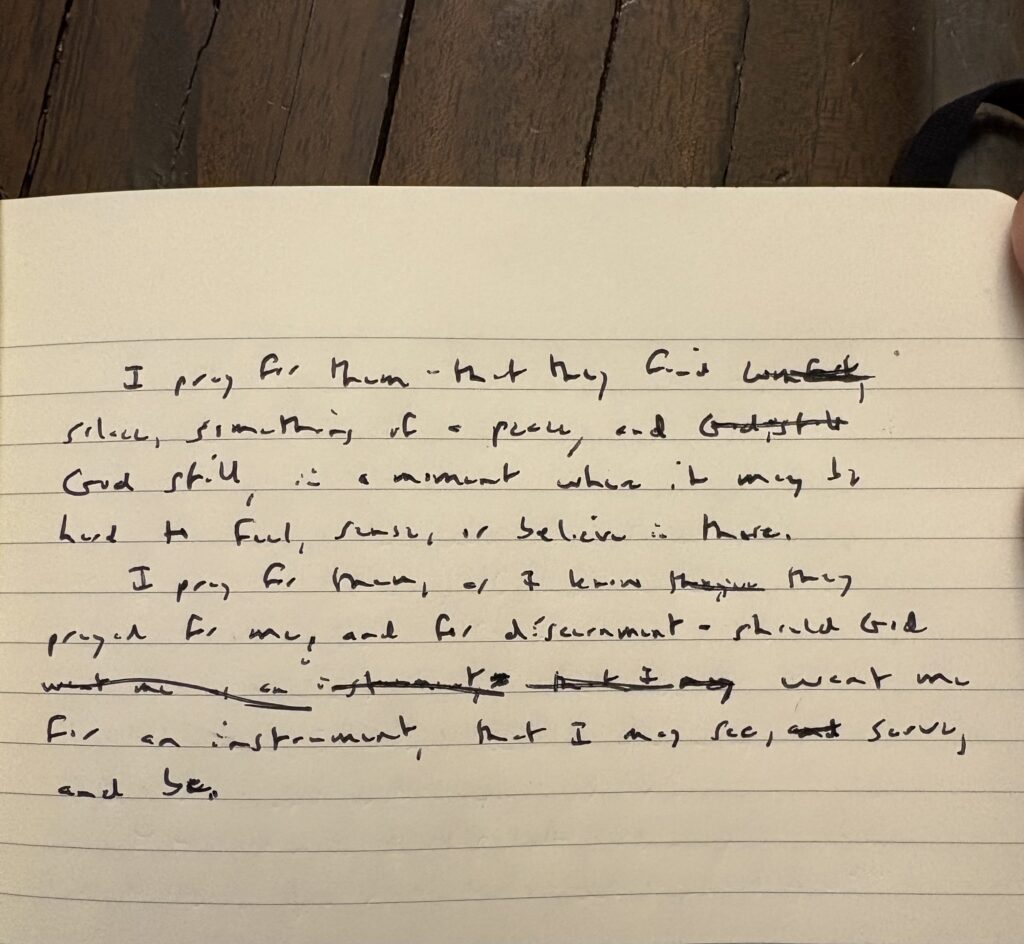 I pray for them - that they find comfort,
solace, something of a peace, and God, still
God still, in a moment where it may be
hard to feel, sense, or believe in there.
I pray for them, as I know they
prayed for me, and for discernment - should God
want me, an instrument, that I may want me
for an instrument, that I may see, and serve,
and be.